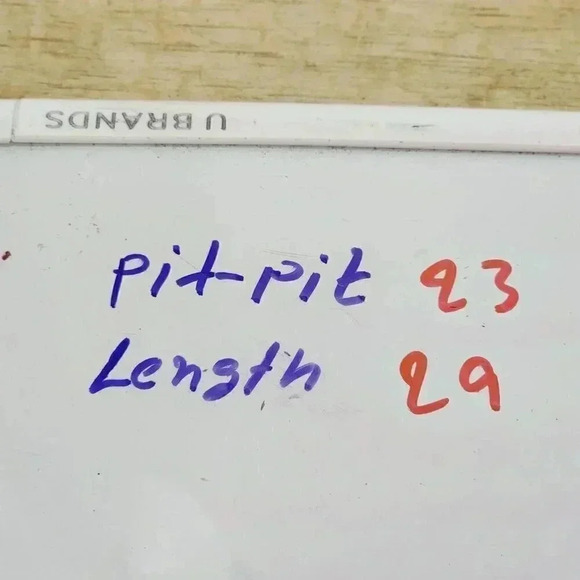 U BRANDS
pit-pit 23
Length 29